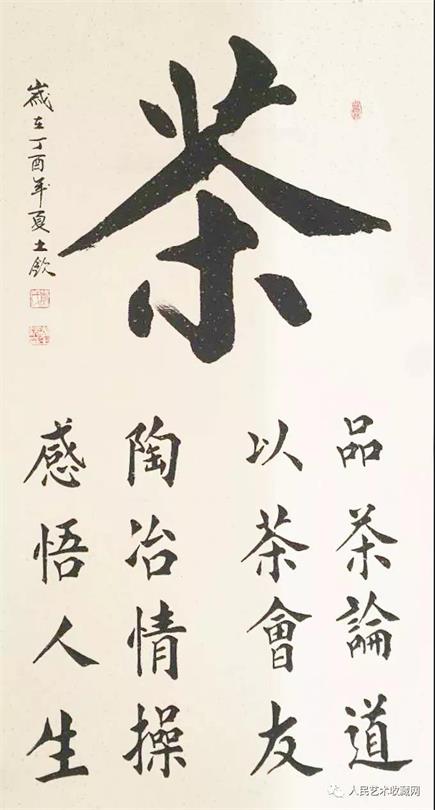 茶
品茶論道
以茶會友
陶冶情操
感悟人生
歲在丁酉年夏土欽
人民艺术收藏网